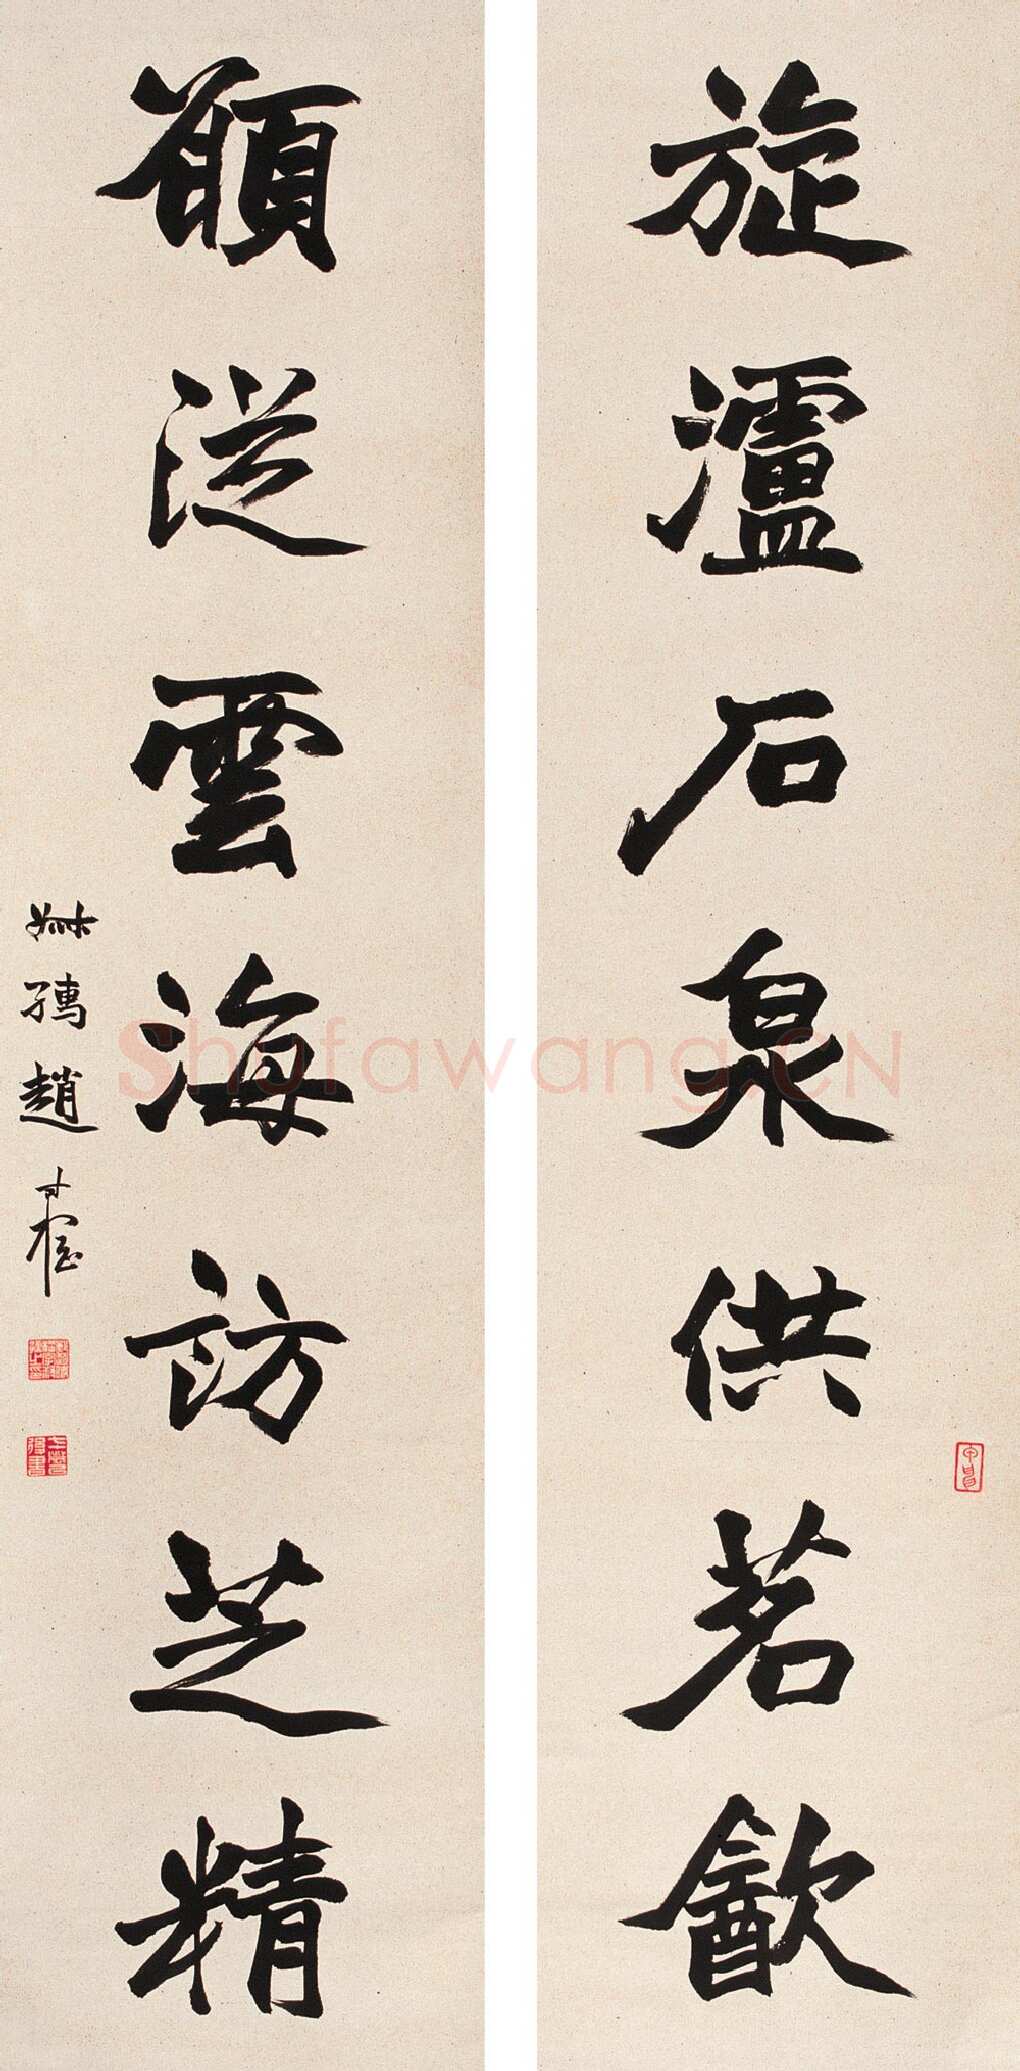 旋瀘石泉供茗㱃
願従雲海訪芝精
叔孺趙時棡
Shufawang.CN